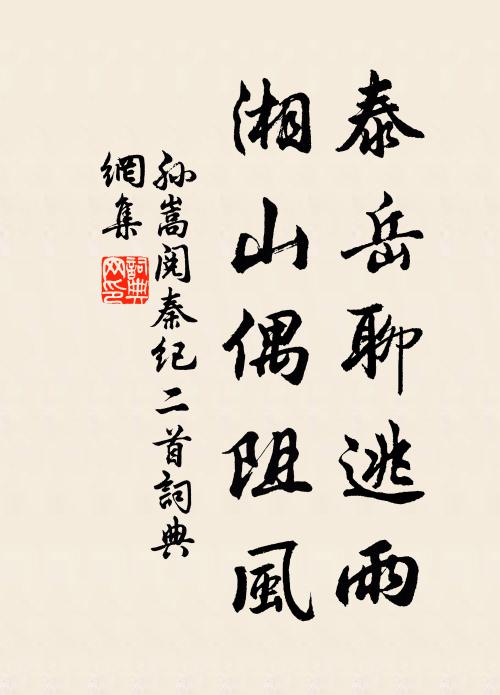 泰岳聊逃雨
湘山偶阻風
孙嵩阅秦纪二首詞典
網集
詞典網印